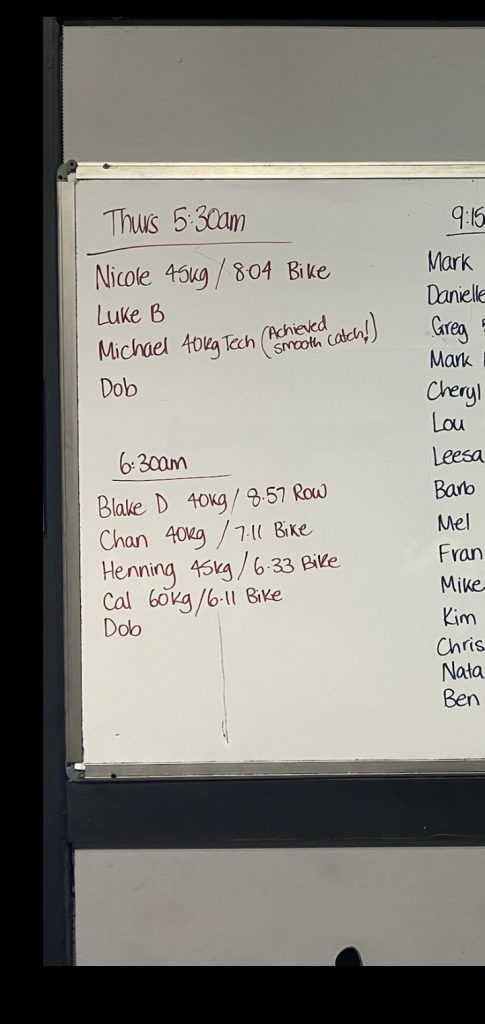 Thurs 5:30am
Nicole 45kg / 8.04 Bike
Luke B
Michael 40kg Tech (Achieved smooth catch!)
Dob
6:30am
Blake D 40kg / 8.57 Row
Chan 40kg / 7.11 Bike
Henning 45kg / 6.33 Bike
Cal 60kg / 6.11 Bike
Dob
9:15
Mark
Danielle
Greg
Mark
Cheryl
Lou
Leesa
Barb
Mel
Fran
Mike
Kim
Chris
Nata
Ben